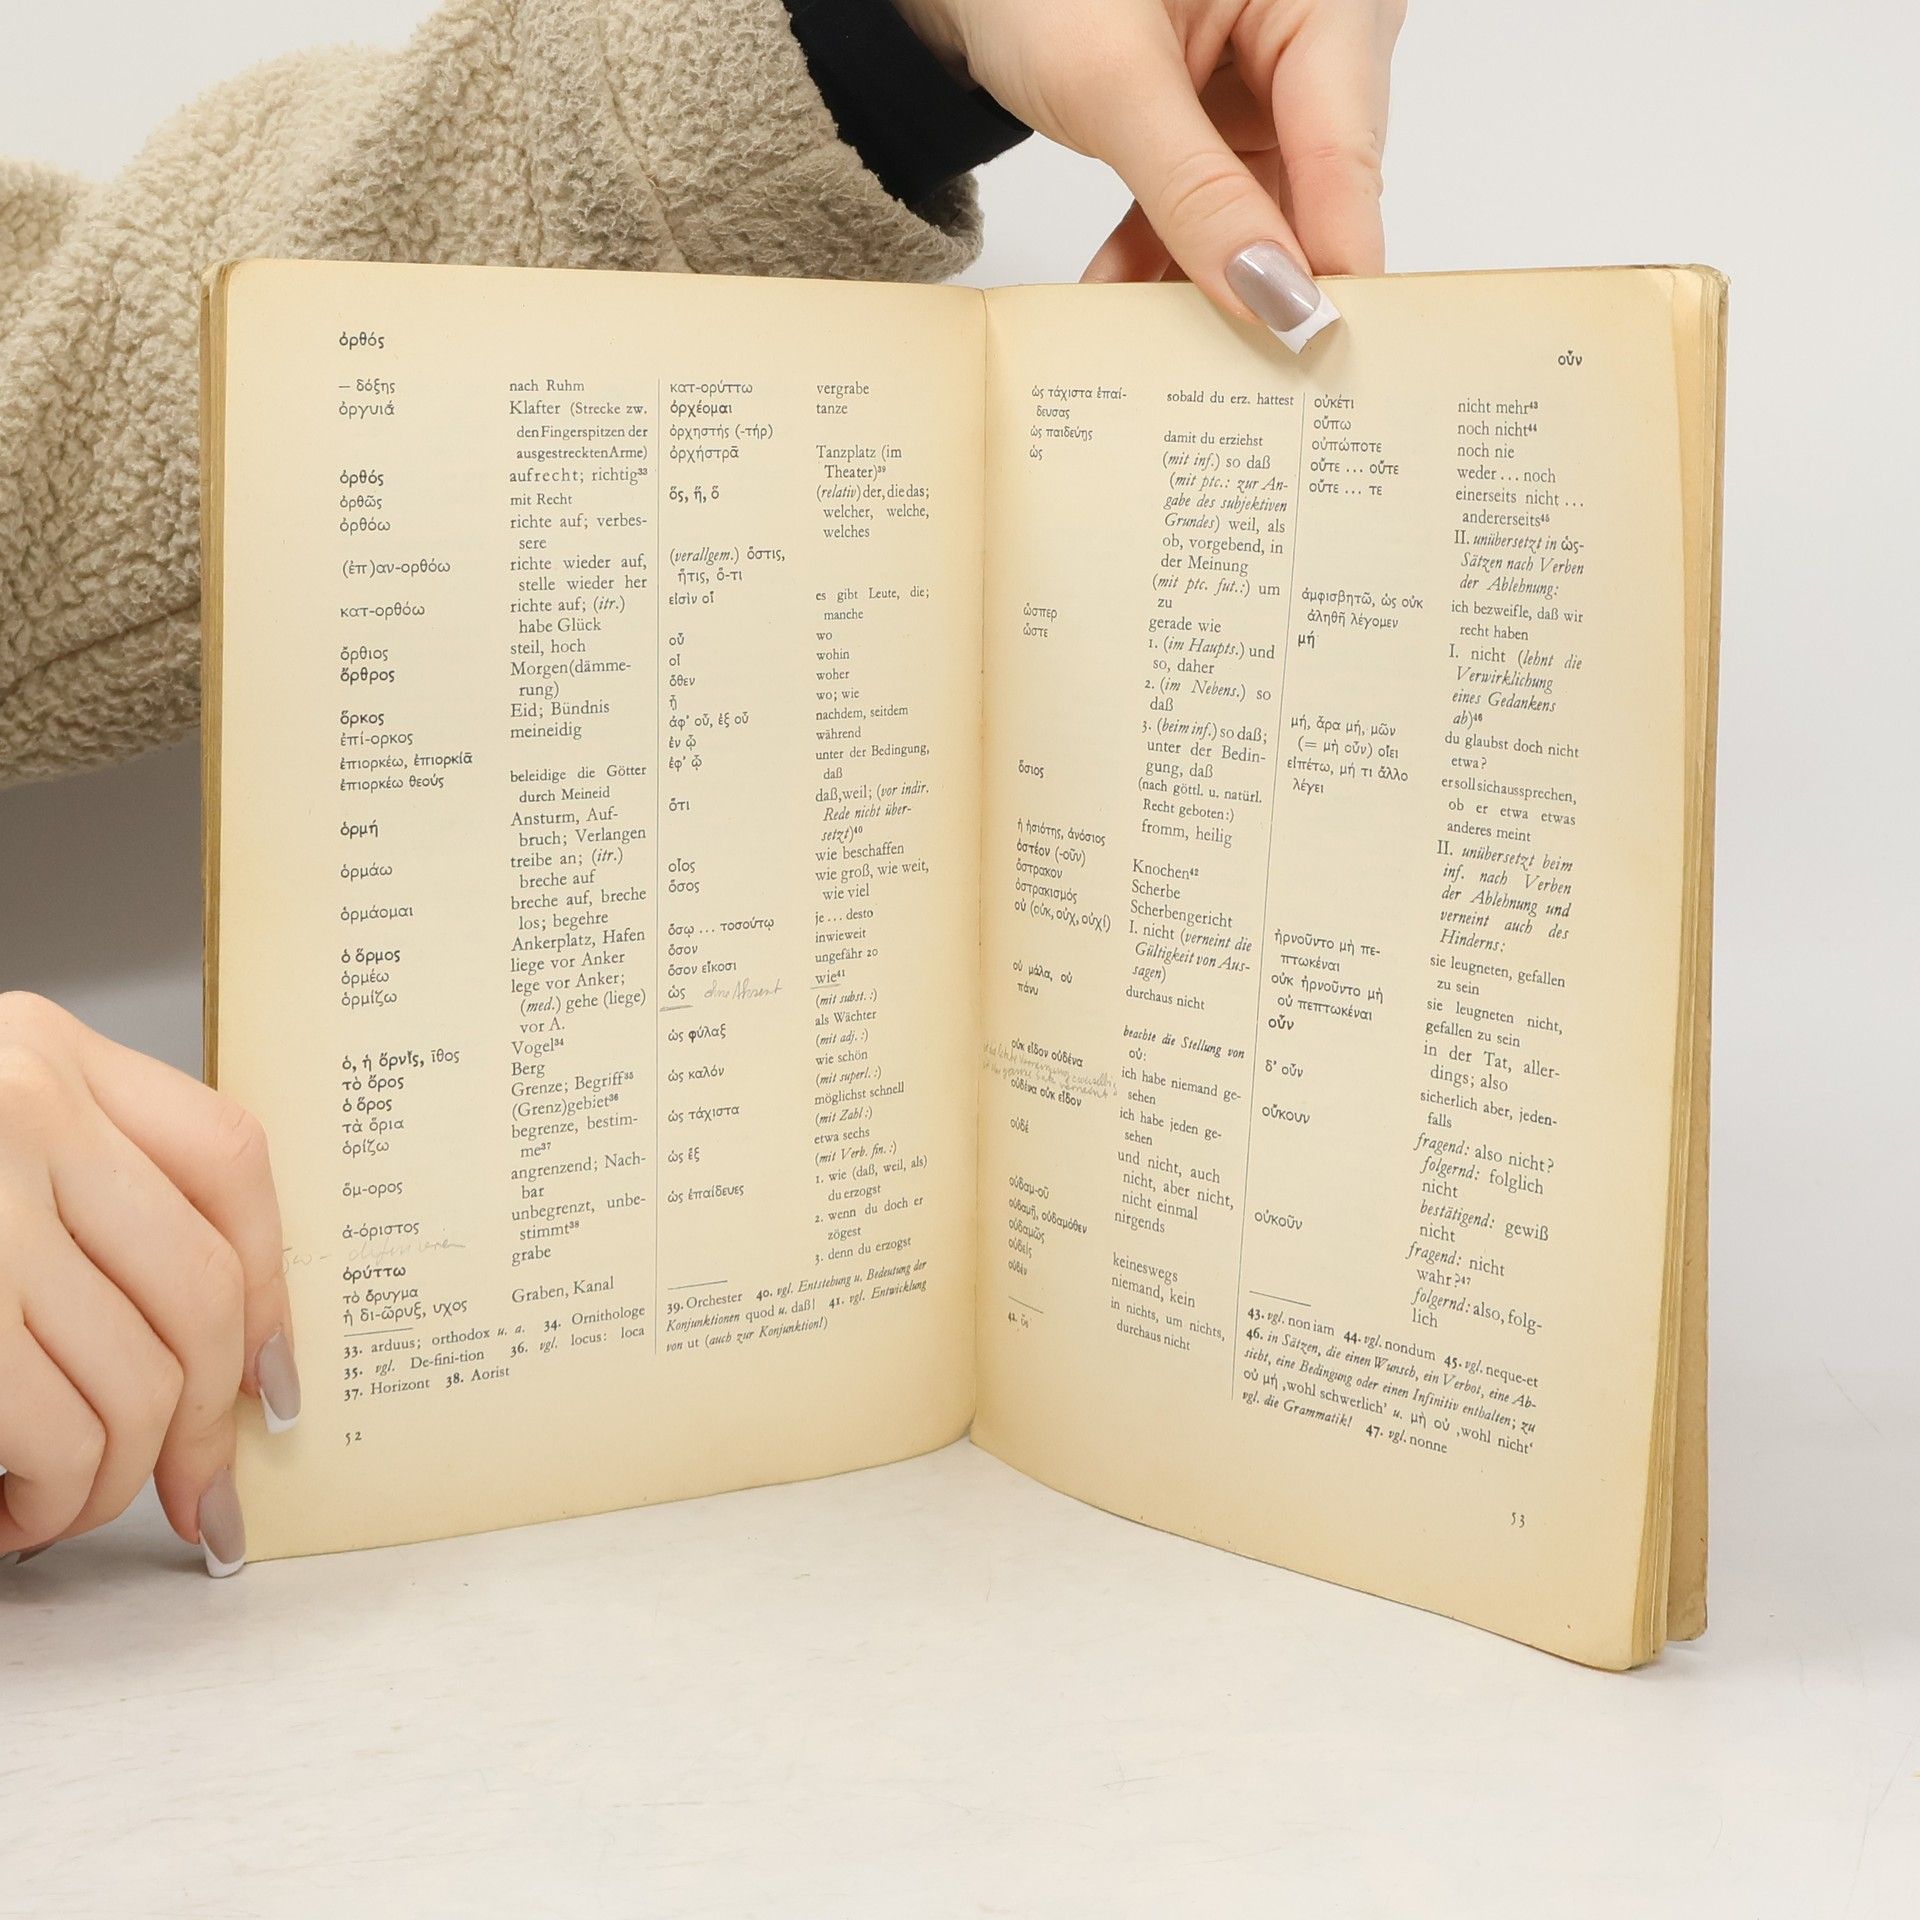 ὀρθός
— δόξης nach Ruhm
ὀργυιά Klafter (Strecke zw.
den Fingerspitzen der
ausgestreckten Arme)
ὀρθός aufrecht; richtig³³
ὀρθῶς mit Recht
ὀρθόω richte auf; verbes-
sere
(ἐπ)αν-ορθόω richte wieder auf,
stelle wieder her
κατ-ορθόω richte auf; (itr.)
habe Glück
ὄρθιος steil, hoch
ὄρθρος Morgen(dämme-
rung)
ὅρκος Eid; Bündnis
ἐπί-ορκος meineidig
ἐπιορκέω, ἐπιορκίᾱ
ἐπιορκέω θεούς beleidige die Götter
durch Meineid
ὁρμή Ansturm, Auf-
bruch; Verlangen
ὁρμάω treibe an; (itr.)
breche auf
ὁρμάομαι breche auf, breche
los; begehre
ὁ ὅρμος Ankerplatz, Hafen
ὁρμέω liege vor Anker
ὁρμίζω lege vor Anker;
(med.) gehe (liege)
vor A.
ὁ, ἡ ὄρνῑς, ῑθος Vogel³⁴
τὸ ὄρος Berg
ὁ ὅρος Grenze; Begriff³⁵
τὰ ὅρια (Grenz)gebiet³⁶
ὁρίζω begrenze, bestim-
me³⁷
ὅμ-ορος angrenzend; Nach-
bar
ἀ-όριστος unbegrenzt, unbe-
stimmt³⁸
ὀρύττω grabe
τὸ ὄρυγμα
ἡ δι-ῶρυξ, υχος Graben, Kanal
33. arduus; orthodox u. a. 34. Ornithologe
35. vgl. De-fini-tion 36. vgl. locus: loca
37. Horizont 38. Aorist
52
κατ-ορύττω vergrabe
ὀρχέομαι tanze
ὀρχηστής (-τήρ)
ὀρχήστρᾱ Tanzplatz (im
Theater)³⁹
ὅς, ἥ, ὅ (relativ) der, die das;
welcher, welche,
welches
(verallgem.) ὅστις,
ἥτις, ὅ-τι
εἰσὶν οἵ es gibt Leute, die;
manche
οὗ wo
οἷ wohin
ὅθεν woher
ᾗ wo; wie
ἀφ' οὗ, ἐξ οὗ nachdem, seitdem
ἐν ᾧ während
ἐφ' ᾧ unter der Bedingung,
daß
ὅτι daß, weil; (vor indir.
Rede nicht über-
setzt)⁴⁰
οἷος wie beschaffen
ὅσος wie groß, wie weit,
wie viel
ὅσῳ ... τοσούτῳ je ... desto
ὅσον inwieweit
ὅσον εἴκοσι ungefähr 20
ὡς ohne Akzent wie⁴¹
(mit subst.:)
ὡς φύλαξ als Wächter
(mit adj.:)
ὡς καλόν wie schön
(mit superl.:)
ὡς τάχιστα möglichst schnell
(mit Zahl:)
ὡς ἕξ etwa sechs
(mit Verb. fin.:)
ὡς ἐπαίδευες 1. wie (daß, weil, als)
du erzogst
2. wenn du doch er
zögest
3. denn du erzogst
39. Orchester 40. vgl. Entstehung u. Bedeutung der
Konjunktionen quod u. daß! 41. vgl. Entwicklung
von ut (auch zur Konjunktion!)
οὖν
ὡς τάχιστα ἐπαί-
δευσας sobald du erz. hattest
ὡς παιδεύῃς damit du erziehst
ὡς (mit inf.) so daß
(mit ptc.: zur An-
gabe des subjektiven
Grundes) weil, als
ob, vorgebend, in
der Meinung
(mit ptc. fut.:) um
zu
ὥσπερ gerade wie
ὥστε 1. (im Haupts.) und
so, daher
2. (im Nebens.) so
daß
3. (beim inf.) so daß;
unter der Bedin-
gung, daß
ὅσιος (nach göttl. u. natürl.
Recht geboten:)
fromm, heilig
ἡ ὁσιότης, ἀνόσιος
ὀστέον (-οῦν) Knochen⁴²
ὄστρακον Scherbe
ὀστρακισμός Scherbengericht
οὐ (οὐκ, οὐχ, οὐχί) I. nicht (verneint die
Gültigkeit von Aus-
sagen)
οὐ μάλα, οὐ
πάνυ durchaus nicht
beachte die Stellung von
οὐ:
οὐκ εἶδον οὐδένα ich habe niemand ge-
sehen
οὐδένα οὐκ εἶδον ich habe jeden ge-
sehen
οὐδέ und nicht, auch
nicht, aber nicht,
nicht einmal
οὐδαμ-οῦ nirgends
οὐδαμῇ, οὐδαμόθεν
οὐδαμῶς keineswegs
οὐδείς niemand, kein
οὐδέν in nichts, um nichts,
durchaus nicht
οὐκέτι nicht mehr⁴³
οὔπω noch nicht⁴⁴
οὐπώποτε noch nie
οὔτε ... οὔτε weder ... noch
οὔτε ... τε einerseits nicht ...
andererseits⁴⁵
II. unübersetzt in ὡς-
Sätzen nach Verben
der Ablehnung:
ἀμφισβητῶ, ὡς οὐκ
ἀληθῆ λέγομεν ich bezweifle, daß wir
recht haben
μή I. nicht (lehnt die
Verwirklichung
eines Gedankens
ab)⁴⁶
μή, ἆρα μή, μῶν
(= μὴ οὖν) οἴει du glaubst doch nicht
etwa?
εἰπέτω, μή τι ἄλλο
λέγει er soll sich aussprechen,
ob er etwa etwas
anderes meint
II. unübersetzt beim
inf. nach Verben
der Ablehnung und
verneint auch des
Hinderns:
ἠρνοῦντο μὴ πε-
πτωκέναι sie leugneten, gefallen
zu sein
οὐκ ἠρνοῦντο μὴ
οὐ πεπτωκέναι sie leugneten nicht,
gefallen zu sein
οὖν in der Tat, aller-
dings; also
δ' οὖν sicherlich aber, jeden-
falls
οὔκουν fragend: also nicht?
folgernd: folglich
nicht
bestätigend: gewiß
nicht
οὐκοῦν fragend: nicht
wahr?⁴⁷
folgernd: also, folg-
lich
43. vgl. non iam 44. vgl. nondum 45. vgl. neque-et
46. in Sätzen, die einen Wunsch, ein Verbot, eine Ab-
sicht, eine Bedingung oder einen Infinitiv enthalten; zu
οὐ μή ‚wohl schwerlich‘ u. μὴ οὐ ‚wohl nicht‘
vgl. die Grammatik! 47. vgl. nonne
53